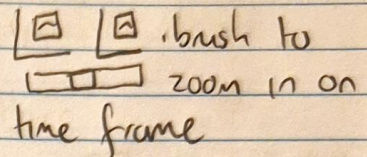 .brush to
zoom in on
time frame